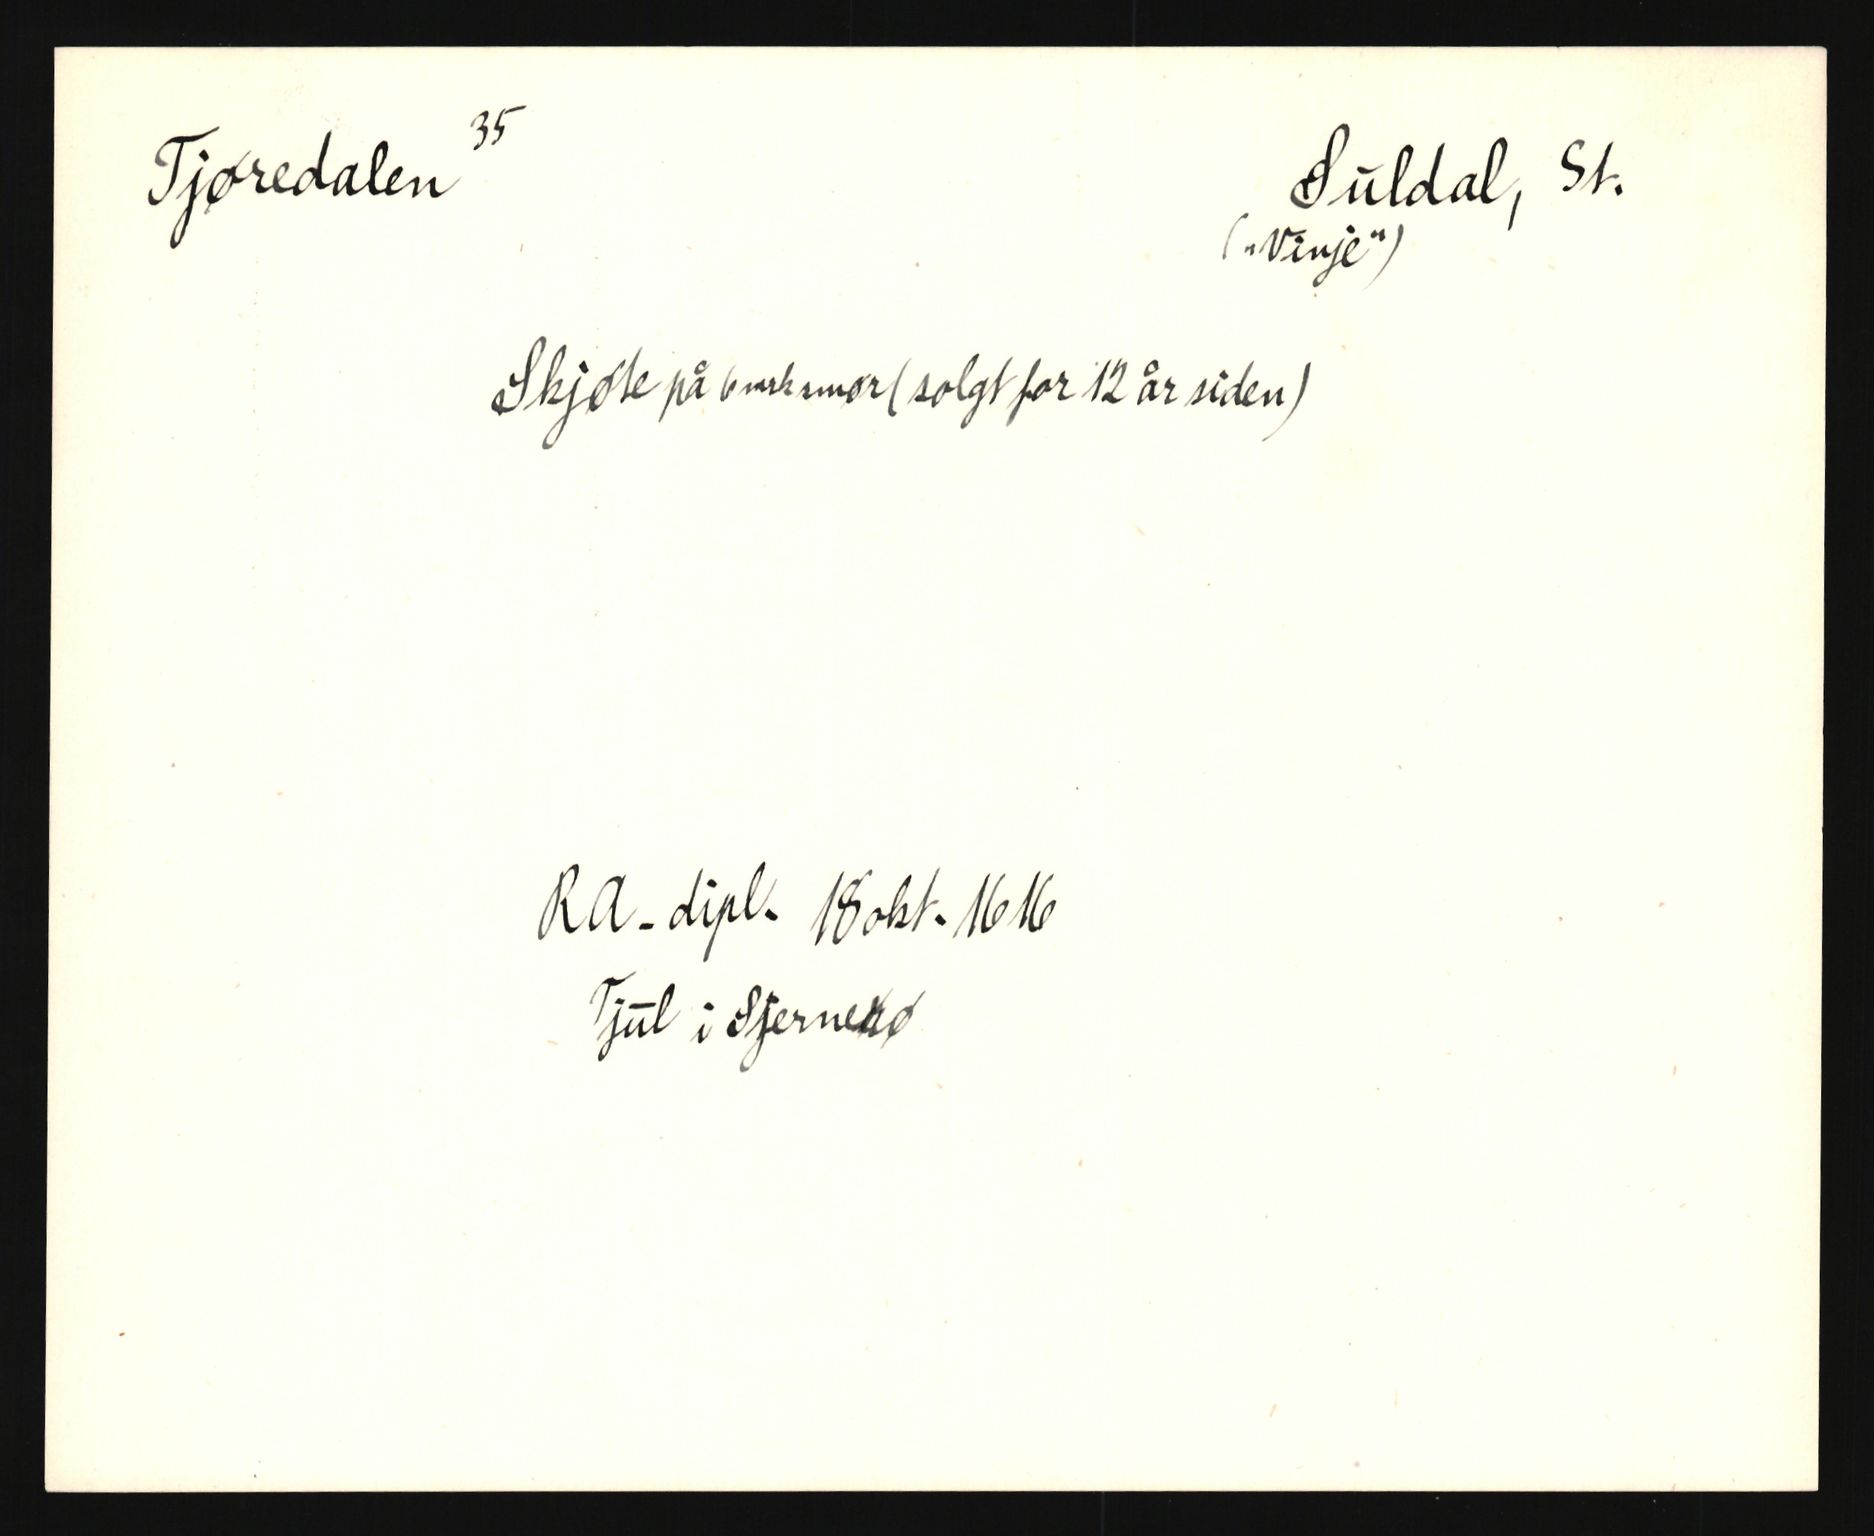 Tjøredalen 35
Suldal, St.
("Vinje")
Skjøte på 6 mrk smør (solgt for 12 år siden)
RA-dipl. 18 okt. 1616
Tjul i Sjernerø